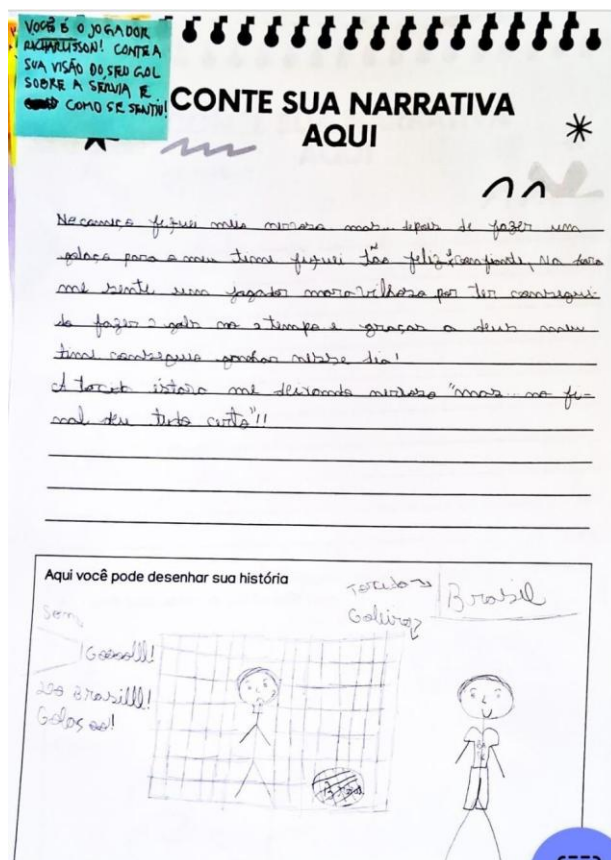 VOCÊ É O JOGADOR
RICHARLISSON! CONTE A
SUA VISÃO DO SEU GOL
SOBRE A SÉRVIA E
COMO SE SENTIU!
CONTE SUA NARRATIVA
AQUI
No começo fiquei meio nervoso mas... depois de fazer um
golaço para o meu time fiquei tão feliz e confiante, na hora
me sente um jogador maravilhoso por ter consegui
do fazer 2 gols no 2 tempo e graças a deus meu
time conseguiu ganhar nesse dia!
A torcida estava me deixando nervoso "mas... no fi-
nal deu tudo certo"!!
Aqui você pode desenhar sua história
Brasil
Sem
Goleiro
!Gooolll!
Brasilll!